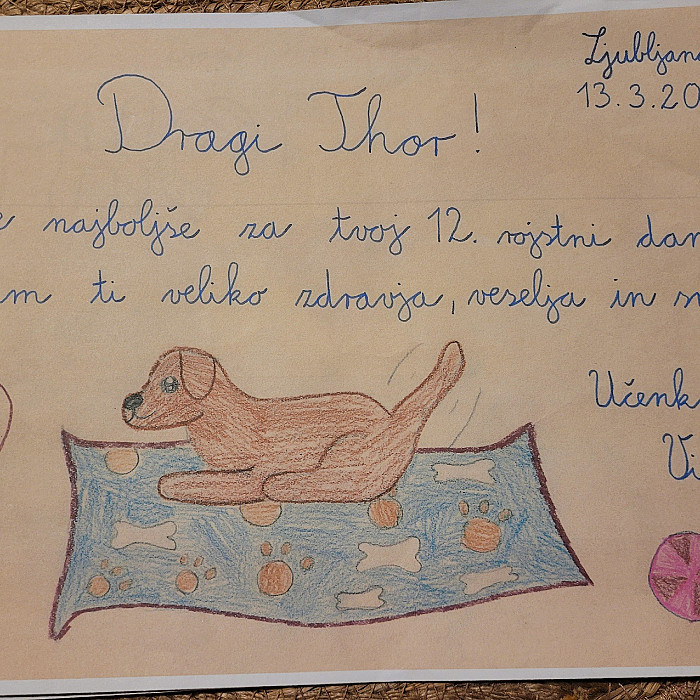 Ljubljana
13.3.20
Dragi Thor!
najboljše za tvoj 12. rojstni dan
ti veliko zdravja, veselja in